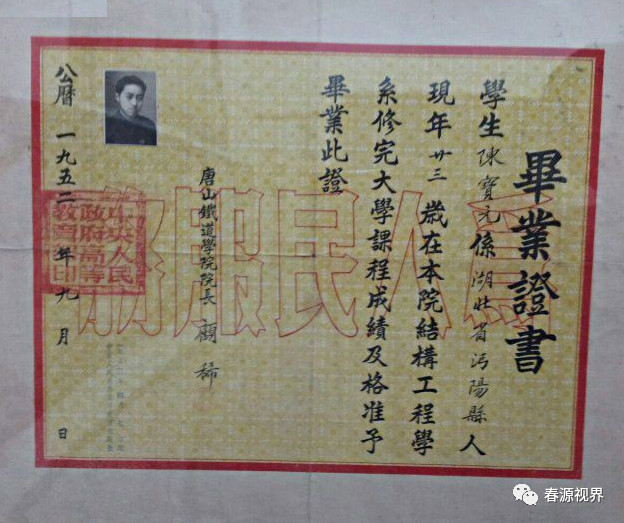 畢業證書
學生陳寶元係湖北省沔陽縣人
現年廿三歲在本院結構工程學
系修完大學課程成績及格准予
畢業此證
唐山鐵道學院院長 顧稀
公曆一九五二年九月 日
為人民服務
中央人民
政府高等
教育部印
春源视界